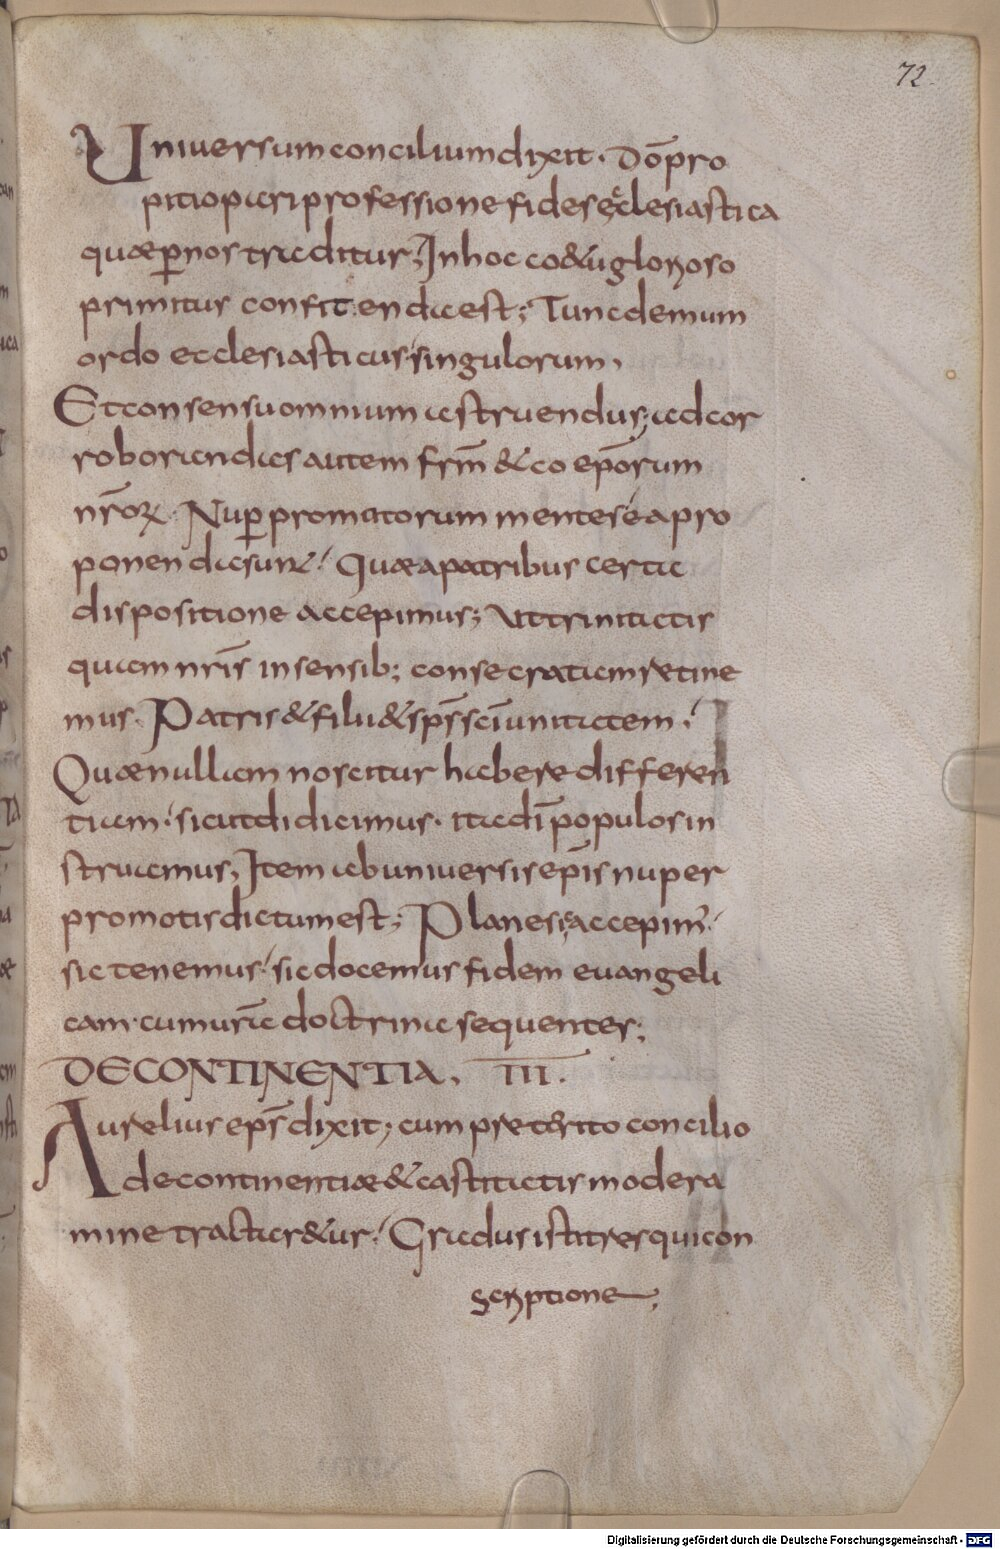 72.
Universum concilium dixit. Dō pro
pitio pari professione fides ęclesiastica
quæ ꝑ nos traditur; In hoc co&u glorioso
primitus confitenda est; Tunc demum
ordo ecclesiasticus singulorum,
Et consensu omnium astruendus; ad cor
roborandas autem frm̄ & coeꝑōrum
nr̄oꝝ. Nuꝑ promotorum mentes ea pro
ponenda sunt. Quæ a patribus certa
dispositione accepimus; Ut trinitatis
quam nrīs in sensib; consecratam retine
mus. Patris & filii & sp̄s sc̄i unitatem.
Quæ nullam noscitur habere differen
tiam. sicut didicimus. ita dī populos in
struamus, Item ab universis ep̄is nuper
promotis dictum est; Plane sic accepim'.
sic tenemus. sic docemus fidem euangeli
cam. cum ur̄a doctrina sequentes;
DE CONTINENTIA. III.
Aurelius ep̄s dixit; cum preterito concilio
de continentiæ & castitatis modera
mine tractar&ur. Gradus isti tres qui con
scriptione,
Digitalisierung gefördert durch die Deutsche Forschungsgemeinschaft - DFG